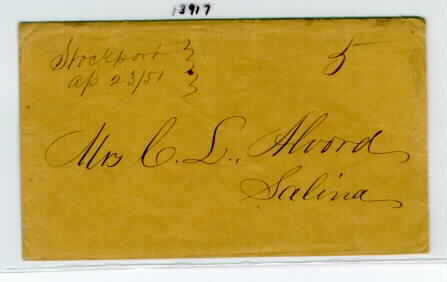 13917
Stockport
ap 23/51
5
Mrs C. L. Alvord
Salina